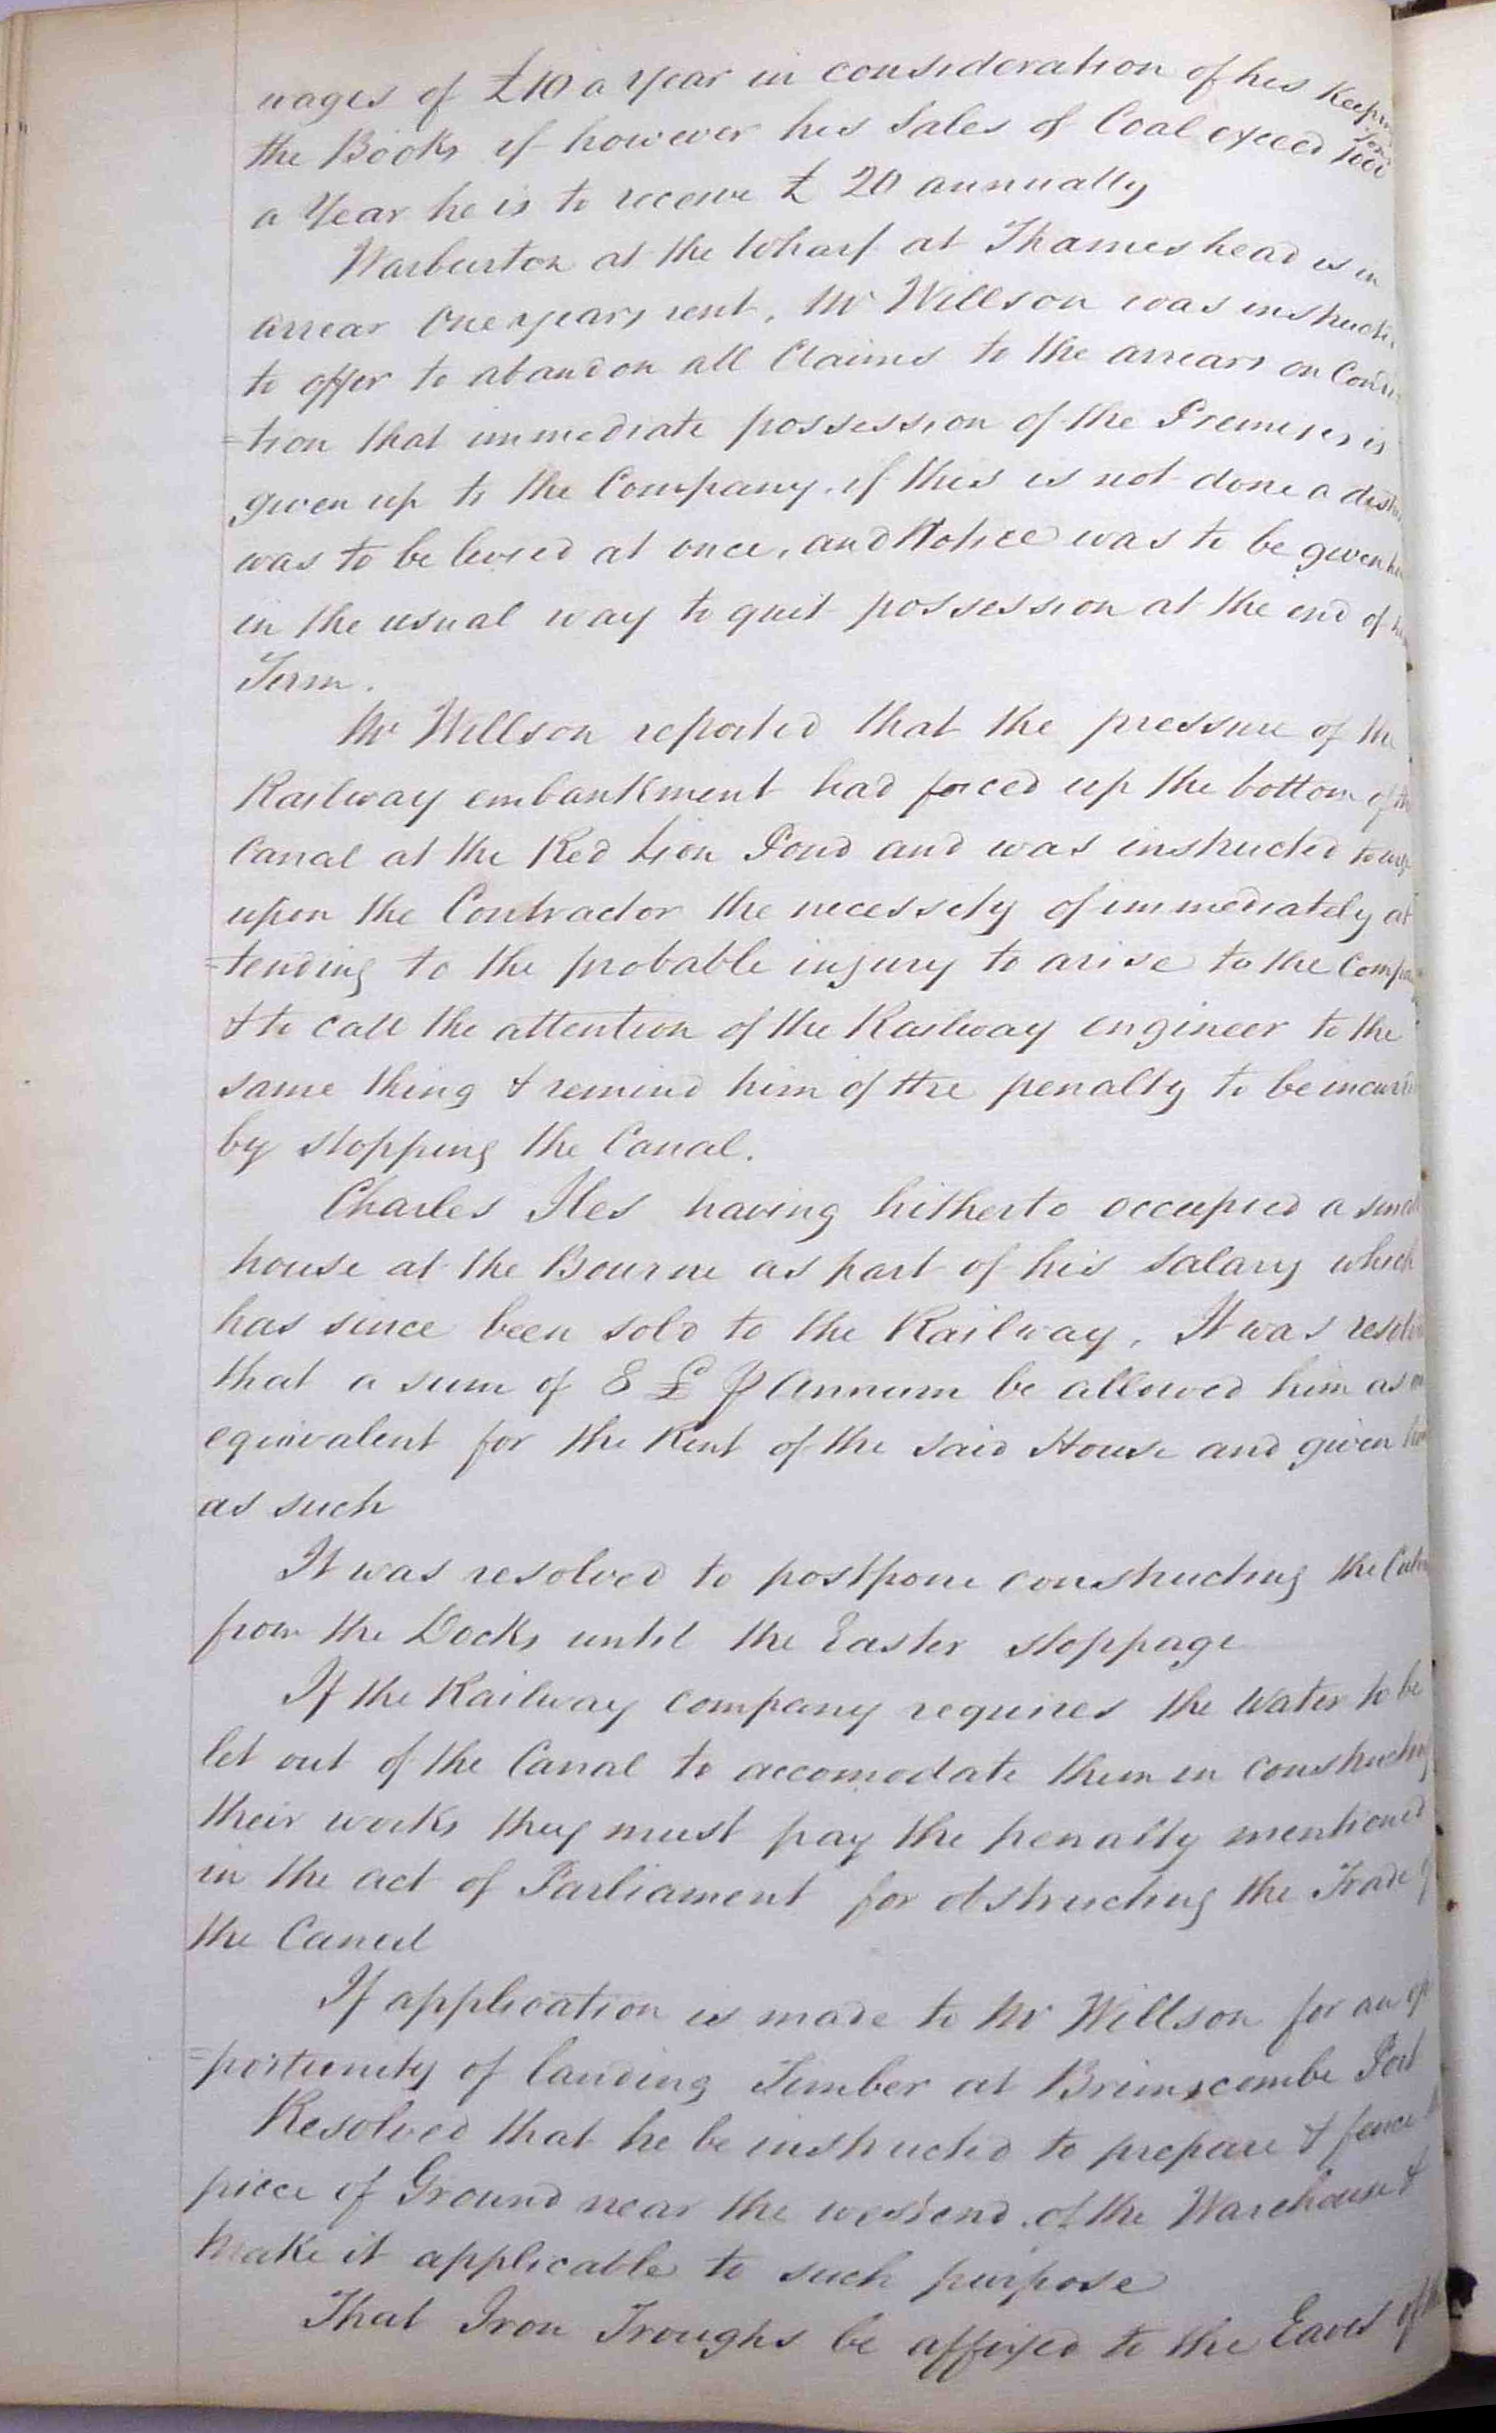 wages of £10 a Year in consideration of his Keepin
the Books if however his Sales of Coal exceed 1000 Tons
a Year he is to receive £ 20 annually
Warburton at the Wharf at Thames head is in
arrear One years rent, Mr Willson was instructe
to offer to abandon all Claims to the arrears on Condi
=tion that immediate possession of the Premises is
given up to the Company. if this is not done a dist
was to be levied at once, and Notice was to be given
in the usual way to quit possession at the end of
Term.
Mr Willson reported that the pressure of the
Railway embankment had forced up the bottom of the
Canal at the Red Lion Pond and was instructed to urge
upon the Contractor the necessity of immediately at
=tending to the probable injury to arise to the Compa
& to call the attention of the Railway engineer to the
same thing & remind him of the penalty to be incurr
by stopping the Canal.
Charles Iles having hitherto occupied a small
house at the Bourne as part of his Salary which
has since been sold to the Railway, It was resolv
that a sum of 8 £ ⅌ Annum be allowed him as
equivalent for the Rent of the said House and given him
as such
It was resolved to postpone constructing the Culv
from the Docks until the Easter stoppage
If the Railway company requires the Water to be
let out of the Canal to accomodate them in constructing
their works they must pay the penalty mentioned
in the act of Parliament for obstructing the Trade of
the Canal
If application is made to Mr Willson for an op
=portunity of landing Timber at Brimscombe Port
Resolved that he be instructed to prepare & fence
piece of Ground near the west end of the Warehouse &
make it applicable to such purpose
That Iron Troughs be affixed to the Eaves of the